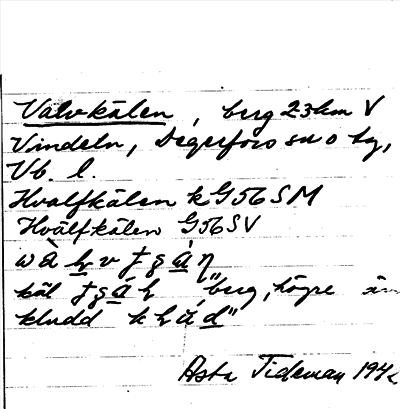 Valvkälen, berg 23 km V
Vindeln, Degerfors sn o tg,
Vb. l.
Hvalfkälen kG56SM
Hvälfkälen G56SV
käl "berg, högre än
kludd
Asta Tideman 194